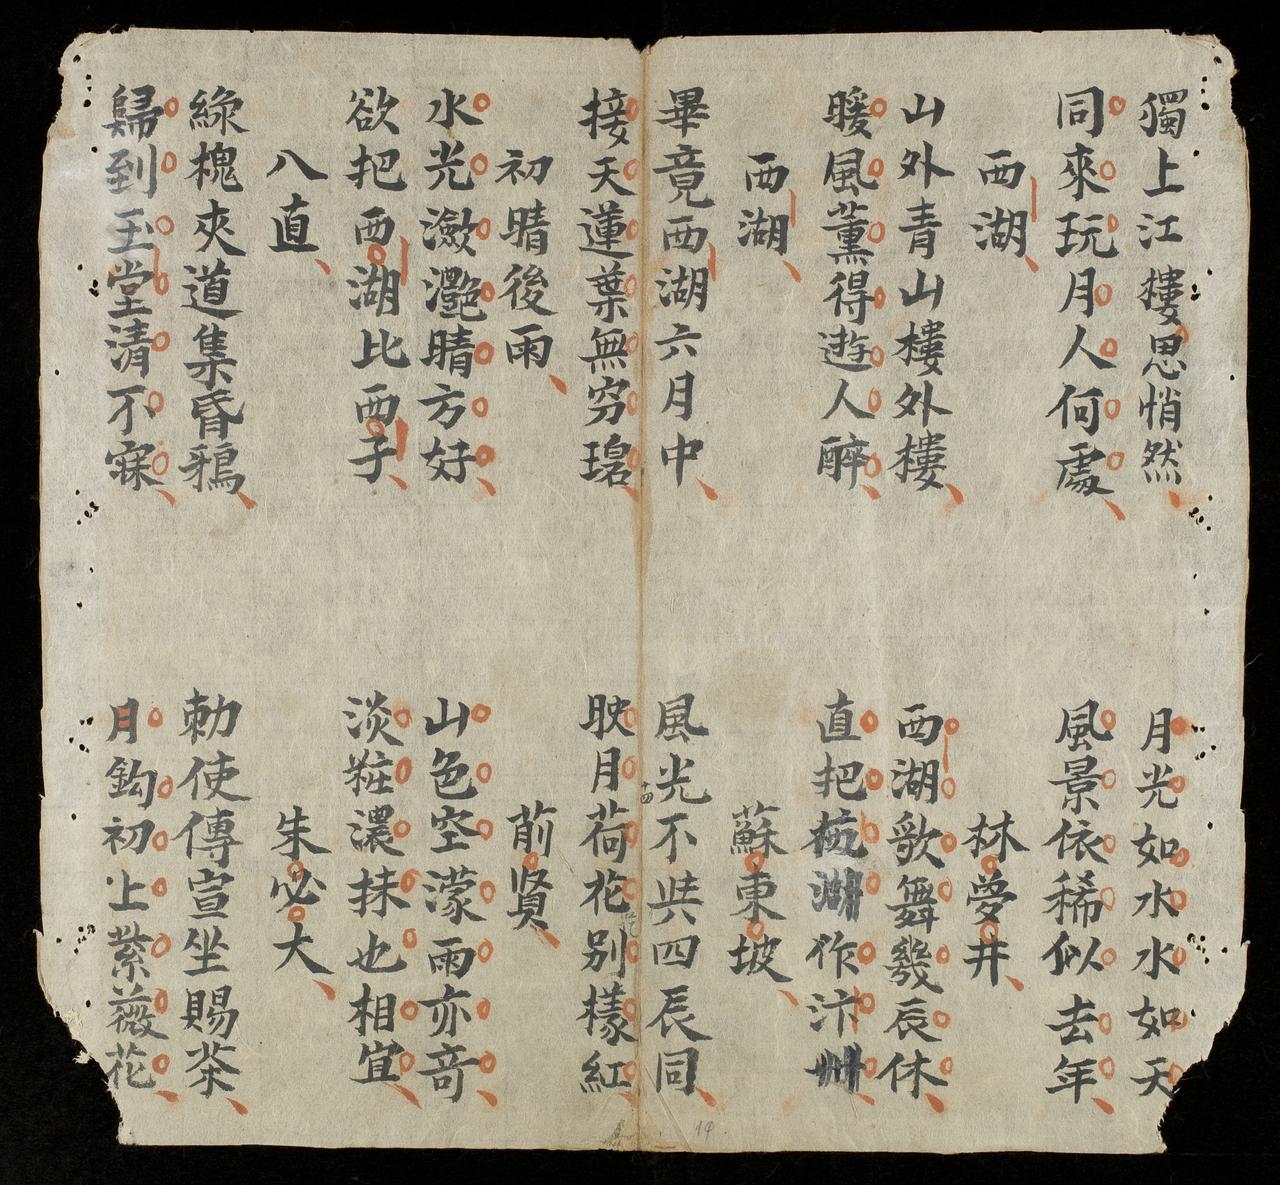 獨上江樓思悄然
月光如水水如天
同來玩月人何處
風景依稀似去年
西湖
林夢井
山外青山樓外樓
西湖歌舞幾辰休
暖風薰得遊人醉
直把杭湖作汴州
西湖
蘇東坡
畢竟西湖六月中
風光不共四辰同
接天蓮葉無穷
映月荷花别樣紅
初晴後雨
前贤
水光瀲灔晴方好
山色空濛雨亦竒
欲把西湖比西子
淡粧濃抹也相宜
八直
朱必大
綠槐夾道集昏鴉
勅使傳宣坐賜茶
歸到玉堂清不寐
月鈎初上紫薇花
14